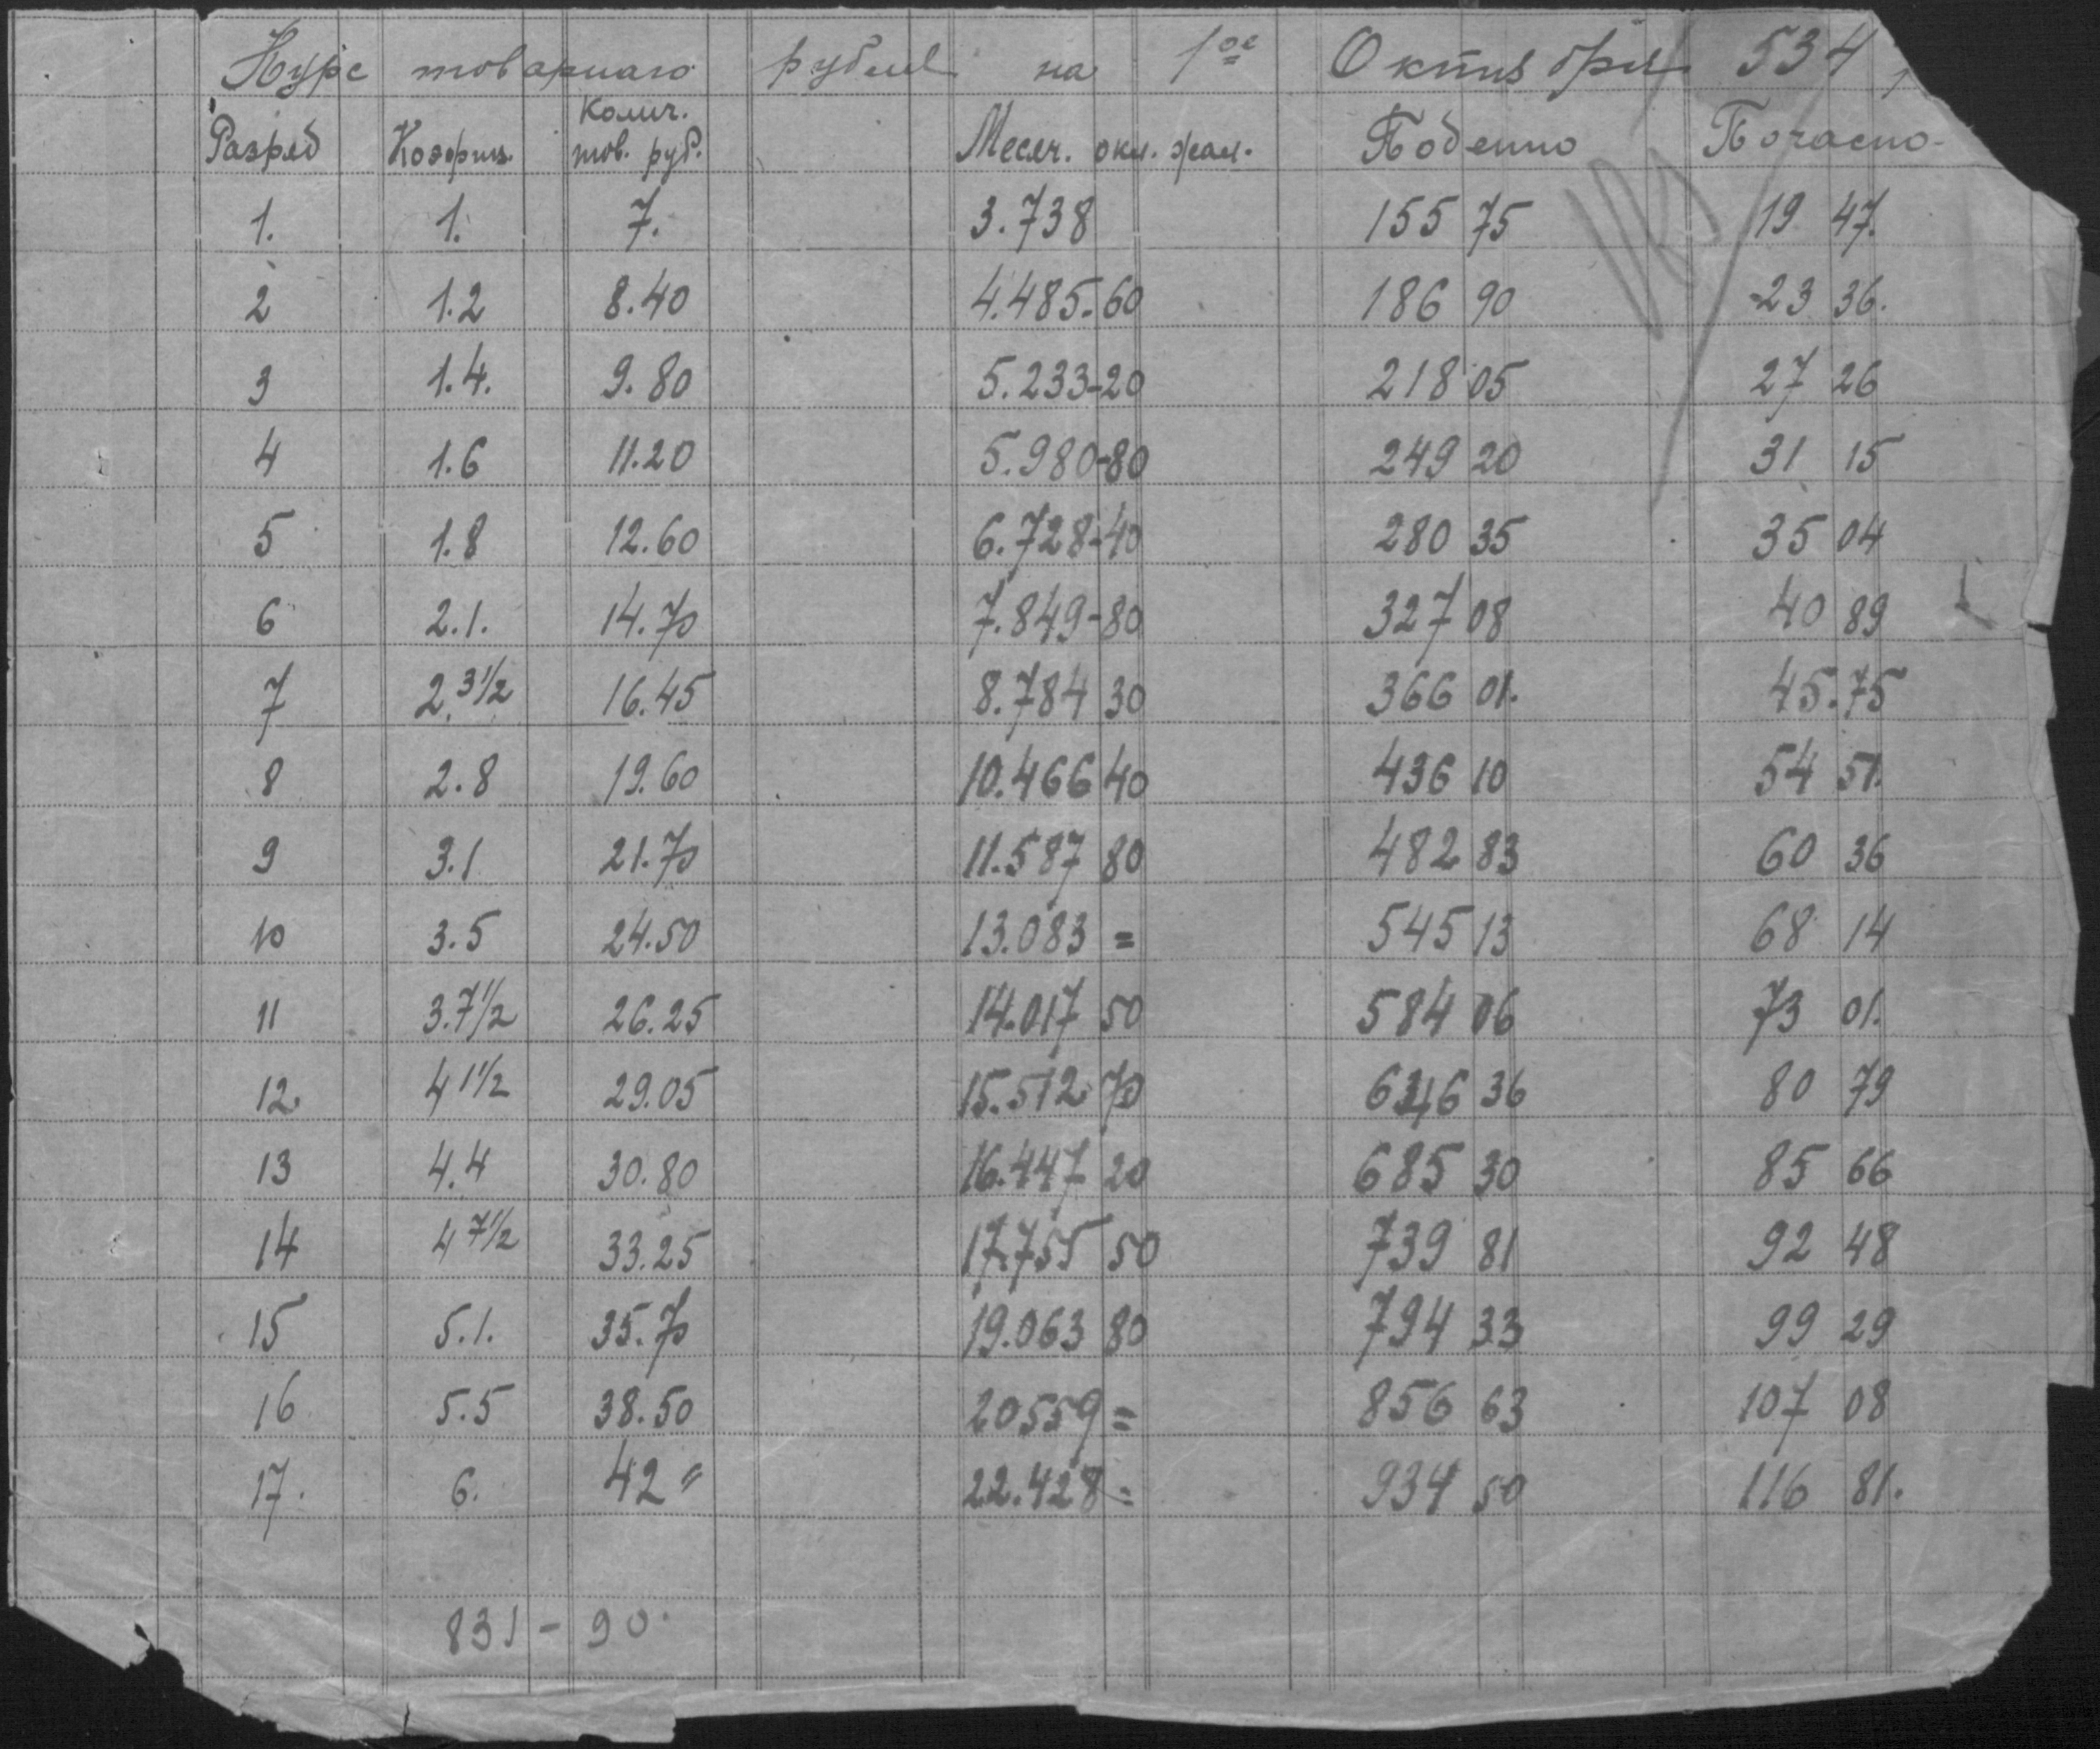 Курс товарнаго рубля на 1ое Октября 534
Разряд Коэфиц. Колич. тов. руб. Месяч. окл. жал. Поденно Почасно-
1. 1. 7. 3.738 155 75 19 47.
2 1.2 8.40 4.485-60 186 90 23 36.
3 1.4. 9.80 5.233-20 218 05 27 26
4 1.6 11.20 5.980-80 249 20 31 15
5 1.8 12.60 6.728-40 280 35 35 04
6 2.1. 14.70 7.849-80 327 08 40 89
7 2.3½ 16.45 8.784 30 366 01. 45.75
8 2.8 19.60 10.466 40 436 10 54 51.
9 3.1 21.70 11.587 80 482 83 60 36
10 3.5 24.50 13.083 = 545 13 68 14
11 3.7½ 26.25 14.017 50 584 06 73 01.
12. 4 1½ 29.05 15.512 70 646 36 80 79
13 4.4 30.80 16.447 20 685 30 85 66
14 4 7½ 33.25 17.755 50 739 81 92 48
15 5.1. 35.70 19.063 80 794 33 99 29
16 5.5 38.50 20559 = 856 63 107 08
17. 6. 42 " 22.428 = 934 50 116 81.
831-90.